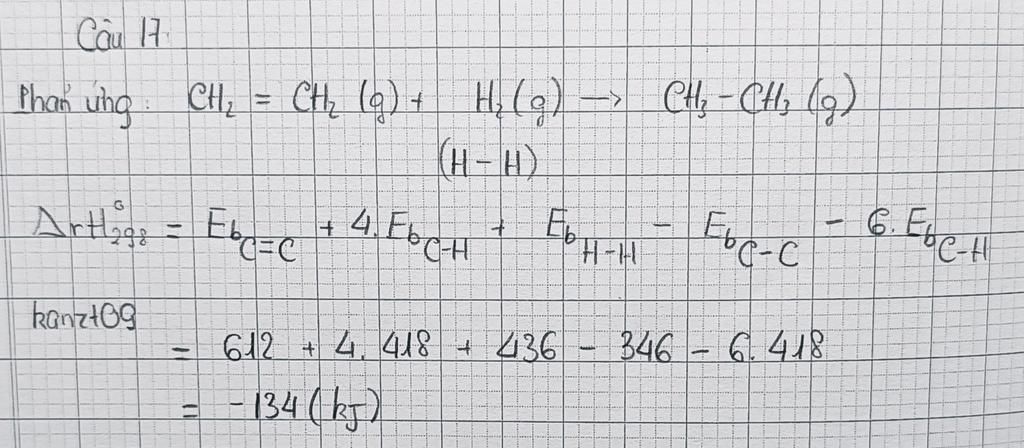 Câu 17.
Phản ứng: CH₂ = CH₂ (g) + H₂ (g) → CH₃ - CH₃ (g)
(H - H)
ΔrH°₂₉₈ = Eb C=C + 4. Eb C-H + Eb H-H - Eb C-C - 6. Eb C-H
kanzt09
= 612 + 4. 418 + 436 - 346 - 6. 418
= -134 (kJ)